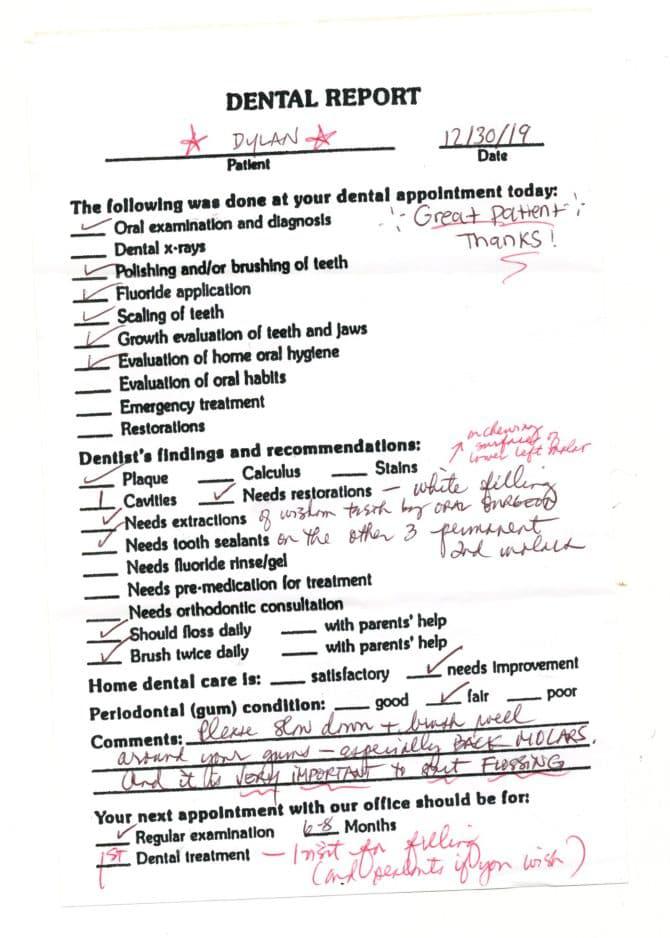 DENTAL REPORT
DYLAN 12/30/19
Patient Date
The following was done at your dental appointment today:
Great Patient
Thanks!
✓ Oral examination and diagnosis
Dental x-rays
✓ Polishing and/or brushing of teeth
✓ Fluoride application
✓ Scaling of teeth
✓ Growth evaluation of teeth and jaws
✓ Evaluation of home oral hygiene
Evaluation of oral habits
Emergency treatment
Restorations
on chewing
surfaces of
lower left molar
Dentist's findings and recommendations:
✓ Plaque Calculus Stains
1 Cavities ✓ Needs restorations – white filling
✓ Needs extractions of wisdom teeth by ORAL SURGEON
✓ Needs tooth sealants on the other 3 permanent
2nd molars
Needs fluoride rinse/gel
Needs pre-medication for treatment
Needs orthodontic consultation
✓ Should floss daily with parents' help
✓ Brush twice daily with parents' help
Home dental care is: satisfactory ✓ needs improvement
Periodontal (gum) condition: good ✓ fair poor
Comments: Please slow down + brush well
around your gums – especially BACK MOLARS.
And it is VERY IMPORTANT to start FLOSSING
Your next appointment with our office should be for:
✓ Regular examination 6-8 Months
1ST Dental treatment – 1 visit for filling
(and sealants if you wish)